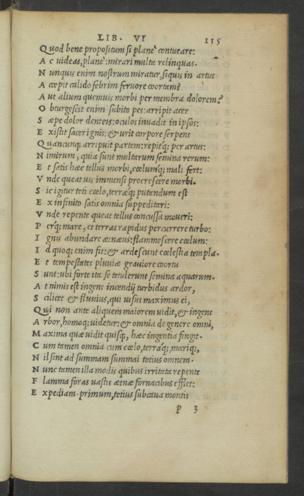 LIB. VI 135
Quod bene propositum si plane contueare:
Ac uideas, plane: mirari multa relinquas.
Nunquis enim nostrum miratur, siquis in artus
Accepit calido febrim feruore coortam?
Aut alium quemuis morbi per membra dolorem?
Obturgescit enim subito pes: arripit acer
Sæpe dolor dentes: oculos inuadit in ipsos:
Existit sacer ignis: & urit corpore serpens
Quancunq; arripuit partem: repitq; per artus:
Nimirum, quia sunt multarum semina rerum:
Et satis hæc tellus morbi, cœlumq; mali fert:
Vnde queat uis immensi procrescere morbi.
Sic igitur toti cœlo, terræq; putandum est
Ex infinito satis omnia suppeditari:
Vnde repente queat tellus concussa moueri:
Perq; mare, et terras rapidus percurrere turbo:
Ignis abundare ætnæus: flammescere cœlum:
Id quoq; enim fit: & ardescunt cœlestia templa.
Et tempestates pluuiæ grauiore coortu
Sunt: ubi forte ita se tetulerunt semina aquarum.
At nimis est ingens incendij turbidus ardor,
Scilicet & fluuius, qui uisus maximus ei,
Qui non ante aliquem maiorem uidit, & ingens
Arbor, homoq; uidetur: & omnia de genere omni,
Maxima quæ uidit quisq; hæc ingentia fingit.
Cum tamen omnia cum cœlo, terraq; mariq;,
Nil sint ad summam summai totius omnem.
Nunc tamen illa modis quibus irritata repente
Flamma foras uastis ætnæ fornacibus efflet:
Expediam. primum, totius subcaua montis
P 3